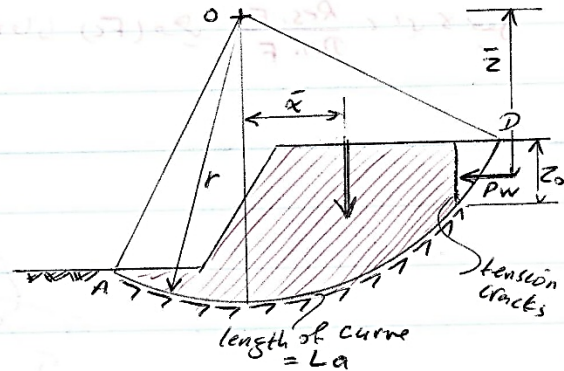 O
z̄
x̄
D
r
Pw
Zo
A
tension
cracks
length of curve
= La